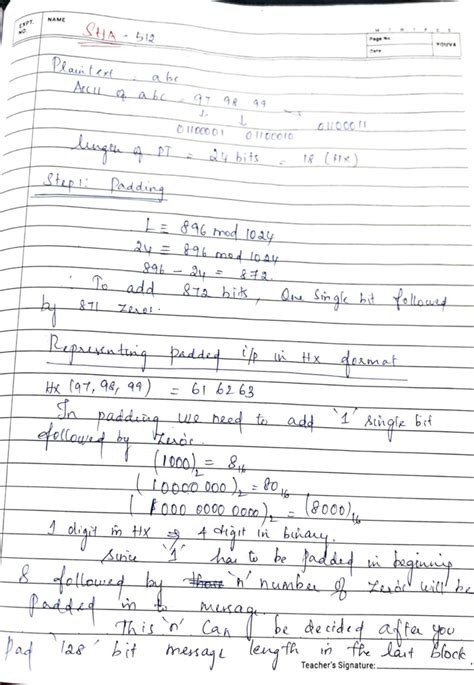 EXPT. NO.
NAME
SHA - 512
M T W T F S S
Page No.:
Date:
YOUVA
Plaintext - abc
Ascii of abc - 97 98 99
01100001 01100010 01100011
length of PT = 24 bits = 18 (Hx)
Step 1: Padding
L ≡ 896 mod 1024
24 ≡ 896 mod 1024
896 - 24 = 872.
∴ To add 872 bits, One single bit followed
by 871 zeros.
Representing padded i/p in Hx format
Hx (97, 98, 99) = 61 62 63
In padding we need to add '1' single bit
followed by zeros.
(1000)₂ = 8₁₆
(10000000)₂ = 80₁₆
(1000 0000 0000)₂ = (8000)₁₆
1 digit in Hx ⇒ 4 digit in binary.
since '1' has to be padded in beginning
& followed by 'n' number of zeros will be
padded in to message.
This 'n' can be decided after you
pad '128' bit message length in the last block.
Teacher's Signature: